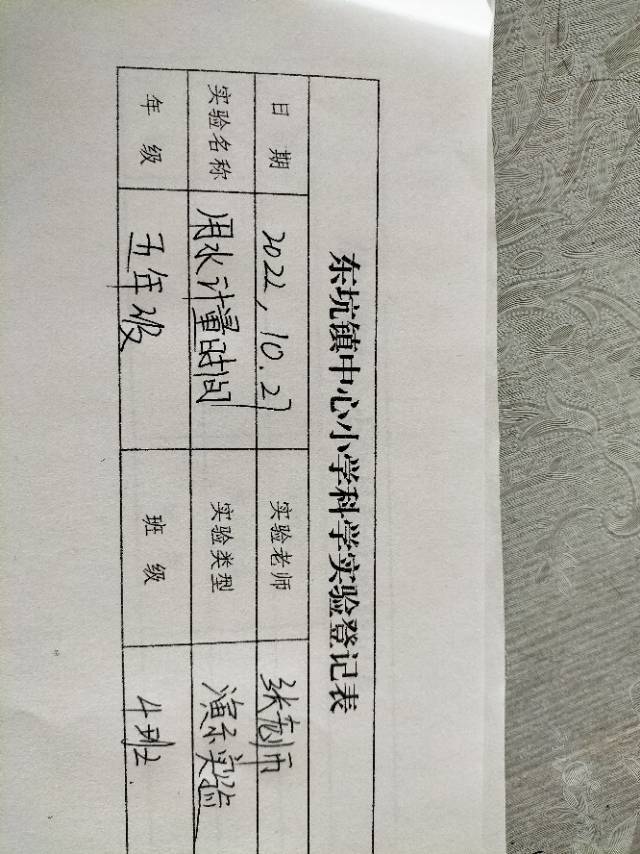 东坑镇中心小学科学实验登记表
日 期 2022,10.27 实验老师 张老师
实验名称 用水计量时间 实验类型 演示实验
年 级 五年级 班 级 4班